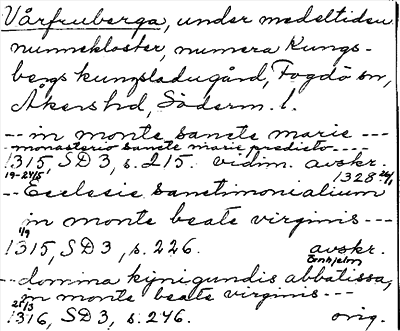 Vårfruberga, under medeltiden
nunnekloster, numera Kungs-
bergs kungsladugård, Fogdö sn,
Åkers hd, Söderm. l.
-- in monte sancte marie ---
monasterio sancte marie predicto ----
1315, SD 3, s. 215. vidim. avskr.
19-24/5 1328 26/1
-- Ecclesie sanctimonialium
in monte beate virginis ---
1/9
1315, SD 3, s. 226. avskr.
Örnhjelm
-- domina kynigundis abbatissa,
in monte beate virginis ---
25/3
1316, SD 3, s. 246. orig.